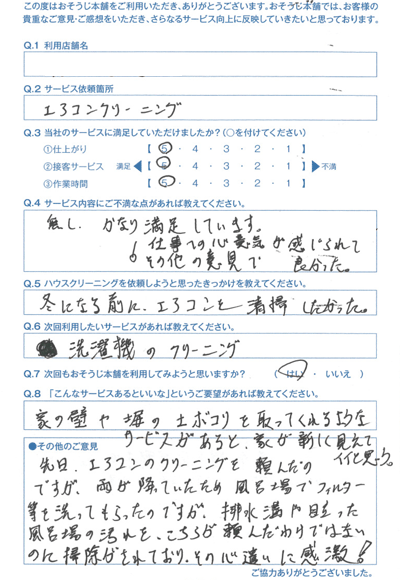 この度はおそうじ本舗をご利用いただき、ありがとうございます。おそうじ本舗では、お客様の
貴重なご意見・ご感想をいただき、さらなるサービス向上に反映していきたいと思っております。
Q.1 利用店舗名
Q.2 サービス依頼箇所
エアコンクリーニング
Q.3 当社のサービスに満足していただけましたか?(○を付けてください)
①仕上がり 【 5 ・ 4 ・ 3 ・ 2 ・ 1 】
②接客サービス 満足 【 5 ・ 4 ・ 3 ・ 2 ・ 1 】 不満
③作業時間 【 5 ・ 4 ・ 3 ・ 2 ・ 1 】
Q.4 サービス内容にご不満な点があれば教えてください。
無し. かなり満足しています。
仕事への心意気が感じられて
その他の意見で 良かった。
Q.5 ハウスクリーニングを依頼しようと思ったきっかけを教えてください。
冬になる前に、エアコンを清掃したかった。
Q.6 次回利用したいサービスがあれば教えてください。
洗濯機のクリーニング
Q.7 次回もおそうじ本舗を利用してみようと思いますか? ( はい ・ いいえ )
Q.8 「こんなサービスあるといいな」というご要望があれば教えてください。
家の壁や塀の土ボコリを取ってくれるような
サービスがあると、家が新しく見えて
イイと思う。
●その他のご意見
先日、エアコンのクリーニングを頼んだの
ですが、雨が降っていたため風呂場でフィルター
等を洗ってもらったのですが、排水溝や目立った
風呂場の汚れを、こちらが頼んだわけではない
のに掃除がされており、その心遣いに感激!
ご協力ありがとうございました。